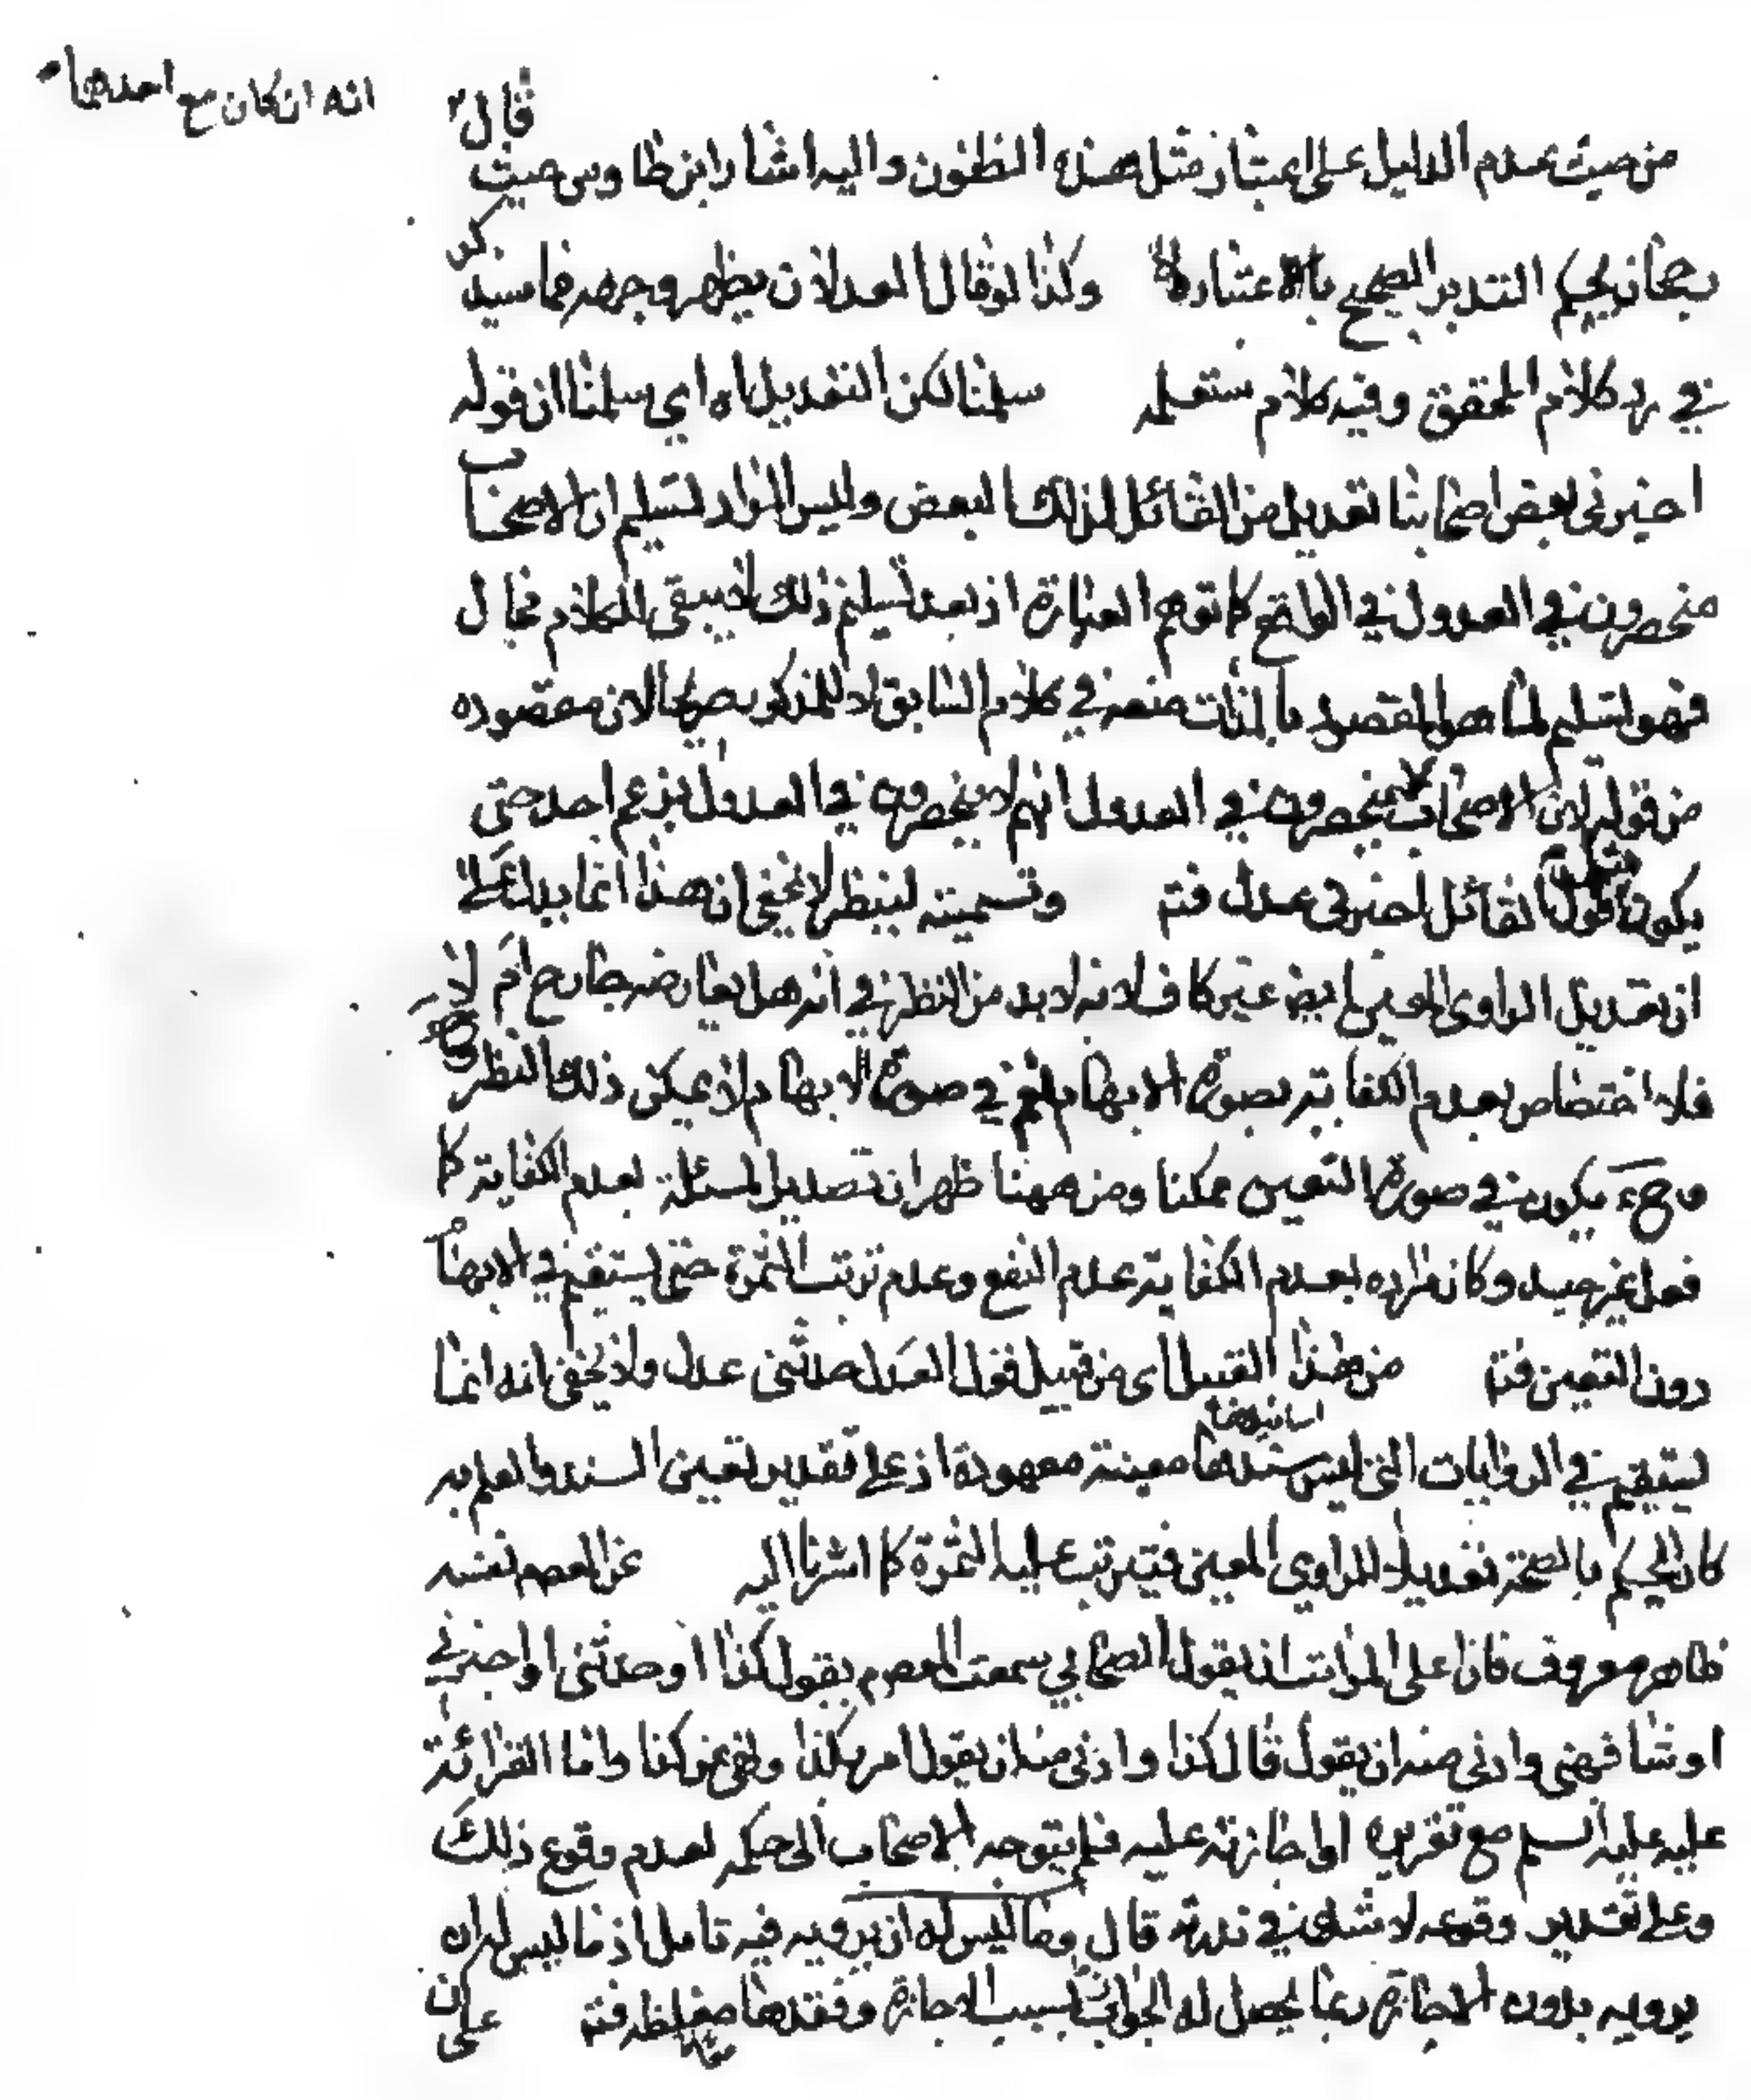 انه ان كان مع احدهما
قال
من حيث عدم الدليل على اعتبار مثل هذه الظنون واليه اشار ابن طاوس حيث
يحكم التدبر الصحيح بالاعتبار وكذا لو قال العدلان يظهر وجهه مما سيذكر
في رد كلام المحقق وفيه كلام ستعلمه سلمنا لكن التعديل اه اي سلمنا ان قوله
اخبرني بعض اصحابنا تعديل من القائل لذلك البعض وليس المراد تسليم ان الاصحاب
منحصرون في العدول في الواقع كما توهم العبارة اذ بعد تسليم ذلك لا يبقى للكلام مجال
فهو تسليم لما هو المقصود بالذات منعه في كلام السابق لا للمذكور صريحا لان مقصوده
من قوله لان الاصحاب لا ينحصرون في العدول انهم لا ينحصرون في العدول بزعم احد حتى
يكون قول القائل اخبرني عدل فتم وتسميته لينظر لا يخفى ان هذا انما يدل على
ان تعديل الراوي المعين ايضا غير كاف لانه لا بد من النظر في انه هل يعارضه جارح ام لا
فلا اختصاص لعدم الكفاية بصورة الابهام نعم في صورة الابهام لا يمكن ذلك النظر
وح يكون في صورة التعيين ممكنا ومن ههنا ظهر ان تصدير المسئلة بعدم الكفاية كما
فعل غير جيد وكان مراده بعدم الكفاية عدم النفع وعدم ترتب الثمرة حتى يستقيم في الابهام
دون التعيين فتم من هذا القبيل اي من قبيل قول العدل حدثني عدل ولا يخفى انه انما
يستقيم في الروايات التي ليس اسانيدها معينة معهودة اذ على تقدير تعيين السند والعلم به
كان الحكم بالصحة تعديلا للراوي المعين فيترتب عليه الثمرة كما اشرنا اليه عن المعصوم نفسه
ظاهر معروف فان اعلى المراتب ان يقول الصحابي سمعت المعصوم يقول كذا او حدثني او اخبرني
او شافهني وادنى منه ان يقول قال كذا وادنى منه ان يقول امر بكذا ونهى عن كذا واما القرائة
عليه عليه السلم مع تقريره او اجازته عليه فلم يتوجه الاصحاب الى حكمه لعدم وقوع ذلك
وعلى تقدير وقوعه لا شك في ندرته قال وما ليس له ان يرويه فيه تامل اذ ما ليس له ان
يرويه بدون الاجازة ربما يحصل له الجواز بسبب الاجازة وفقدها فتم على ان